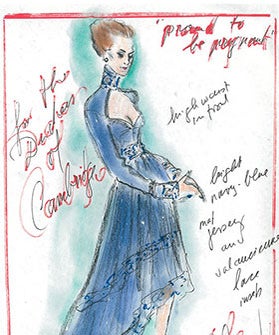 "proud to
be pregnant"
for the
Duchess
of
Cambridge
high waist
in front
bright
navy-blue
mat
jersey
and
valancienne
lace